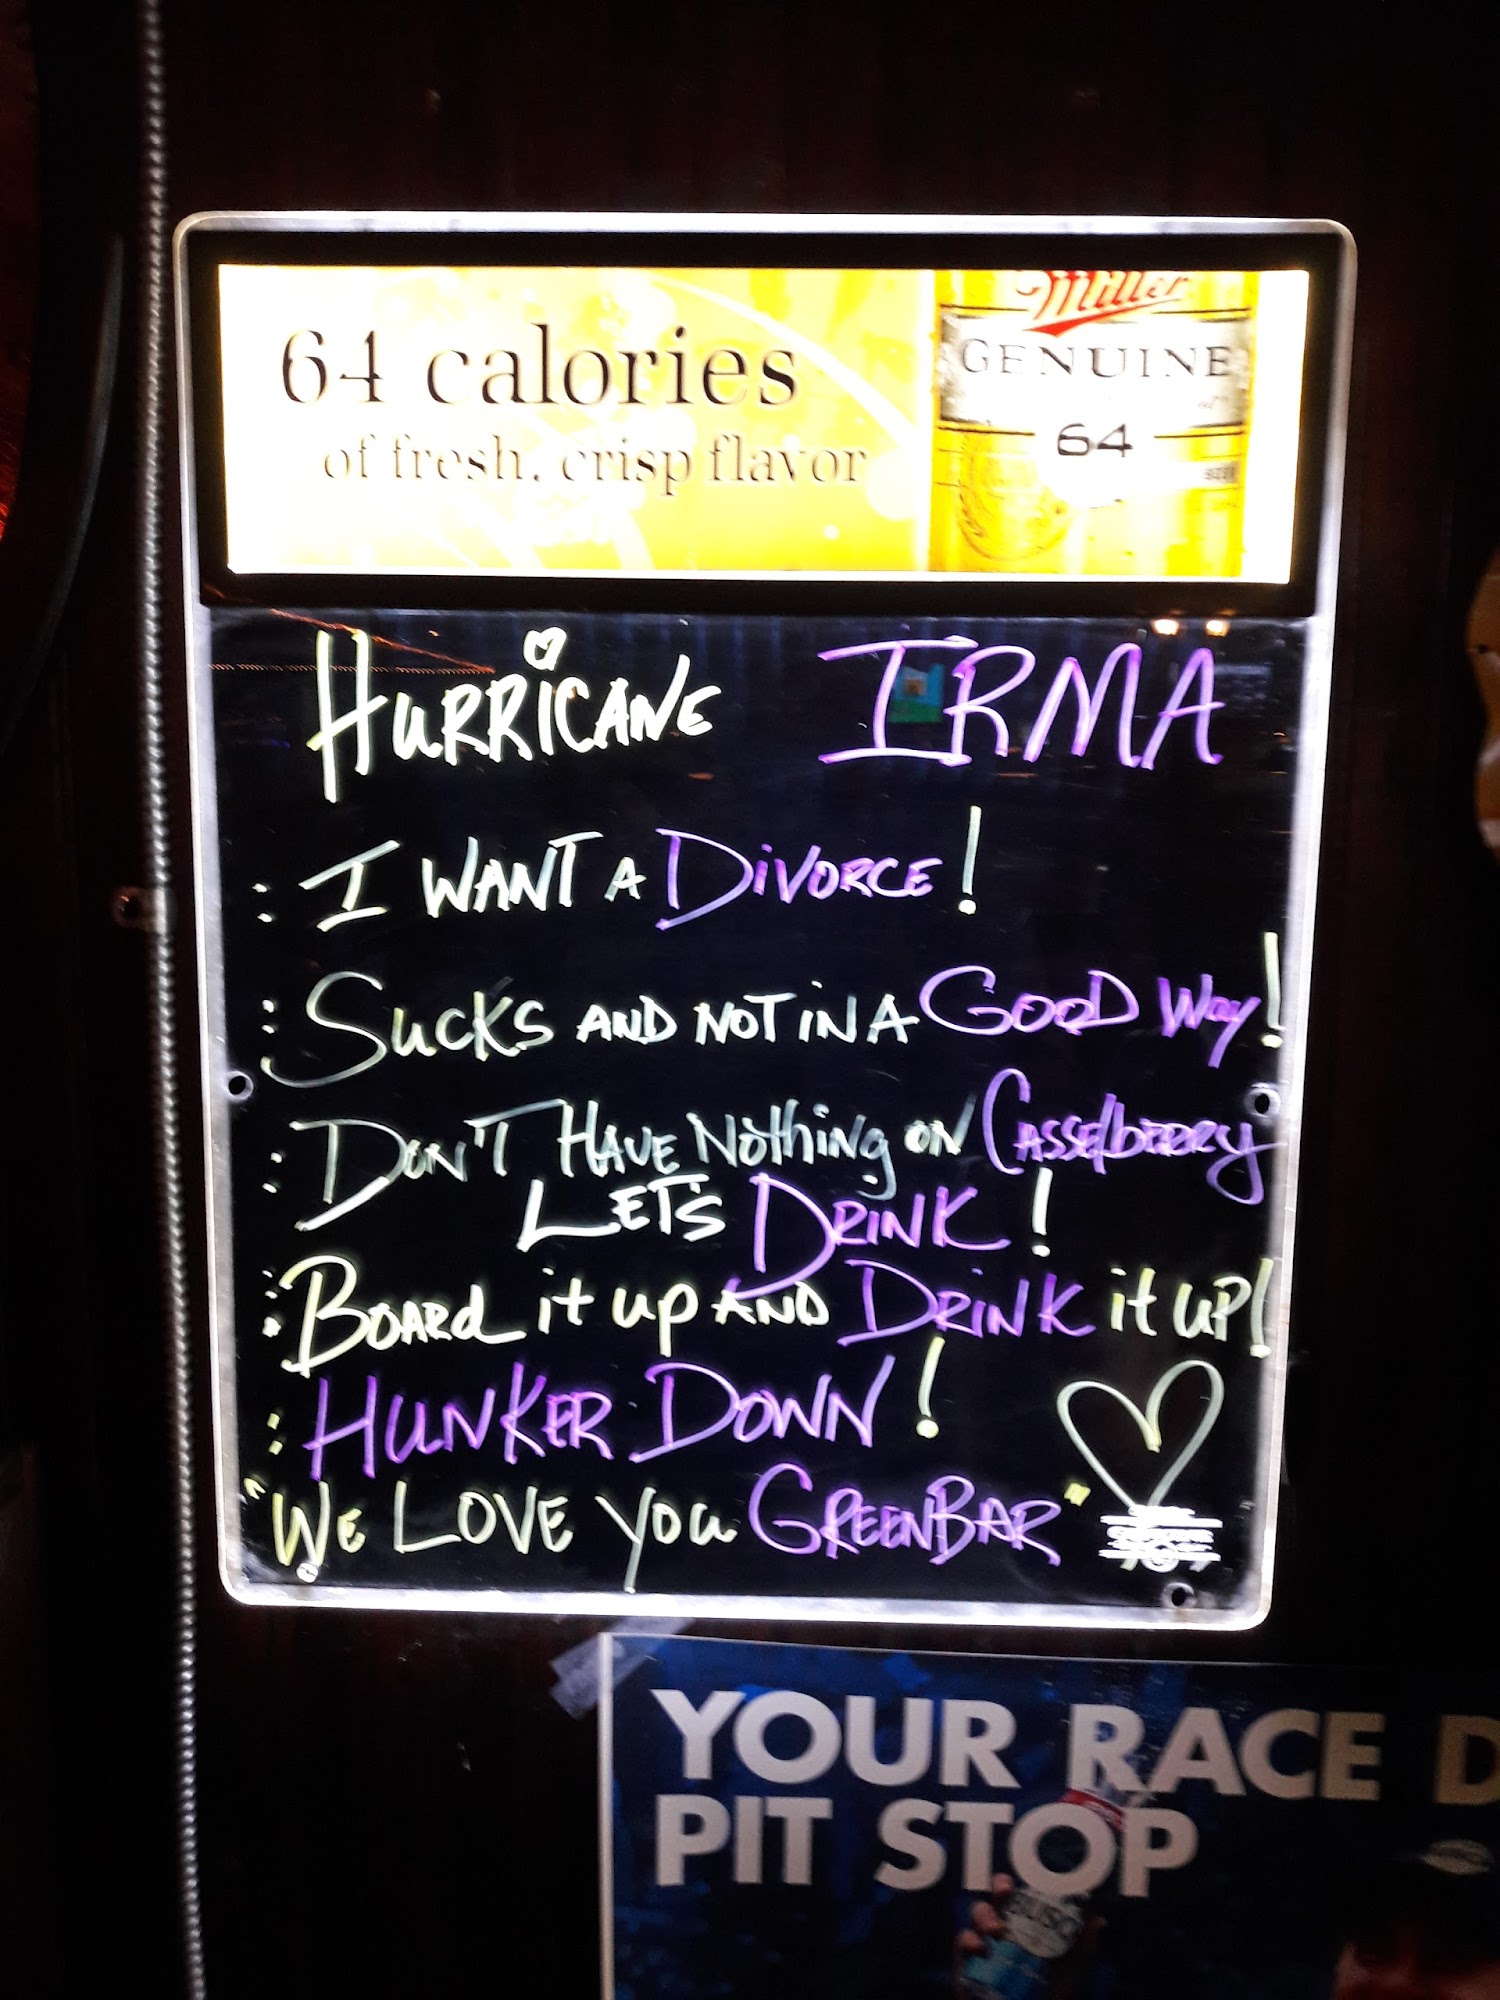 64 calories
of fresh, crisp flavor
Miller
GENUINE
64
HURRiCANE IRMA
: I WANT A DiVORCE!
: SUCKS AND NOT IN A GOOD WAY!
: DON'T HAVE Nothing ON CASSElbERRY
LET'S DRINK!
: BOARd it up AND DRiNK it UP!
: HUNKER DOWN!
"We LOVE you GREENBAR"
YOUR RACE D
PIT STOP
BUSC